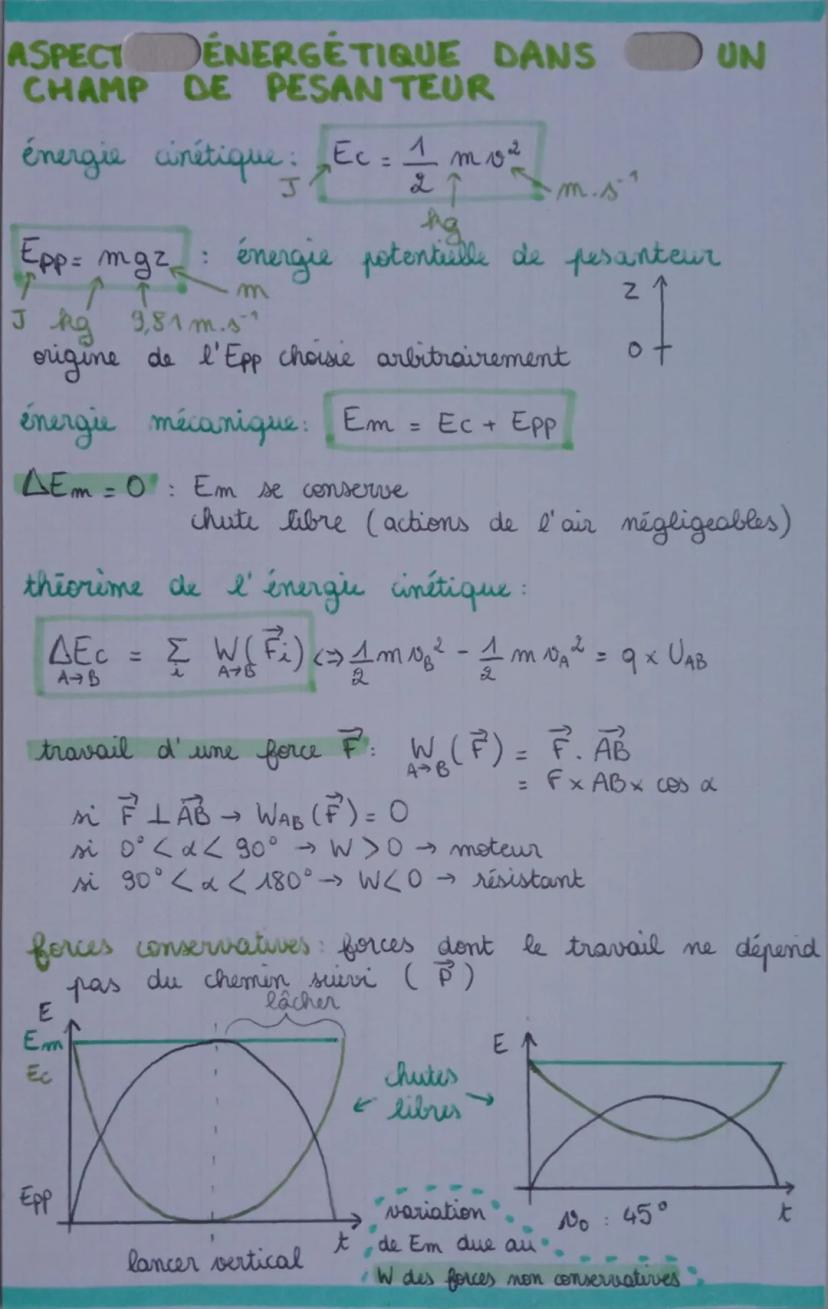 ASPECT ÉNERGÉTIQUE DANS UN
CHAMP DE PESANTEUR
énergie cinétique : Ec = 1/2 m v²
J
kg
m.s⁻¹
Epp = mgz : énergie potentielle de pesanteur
m
J kg 9,81 m.s⁻¹
z
0
origine de l'Epp choisie arbitrairement
énergie mécanique : Em = Ec + Epp
ΔEm = 0 : Em se conserve
chute libre (actions de l'air négligeables)
théorème de l'énergie cinétique :
ΔEc = Σ W(F⃗i) <=> 1/2 m vB² - 1/2 m vA² = q x UAB
A→B i A→B
travail d'une force F⃗ : W(F⃗) = F⃗ . AB⃗
A→B
= F x AB x cos α
si F⃗ ⊥ AB⃗ → WAB (F⃗) = 0
si 0° < α < 90° → W > 0 → moteur
si 90° < α < 180° → W < 0 → résistant
forces conservatives : forces dont le travail ne dépend
pas du chemin suivi ( P⃗ )
lâcher
E
Em
Ec
Epp
t
lancer vertical
← chutes →
libres
E
t
v0 : 45°
variation
de Em due au
W des forces non conservatives